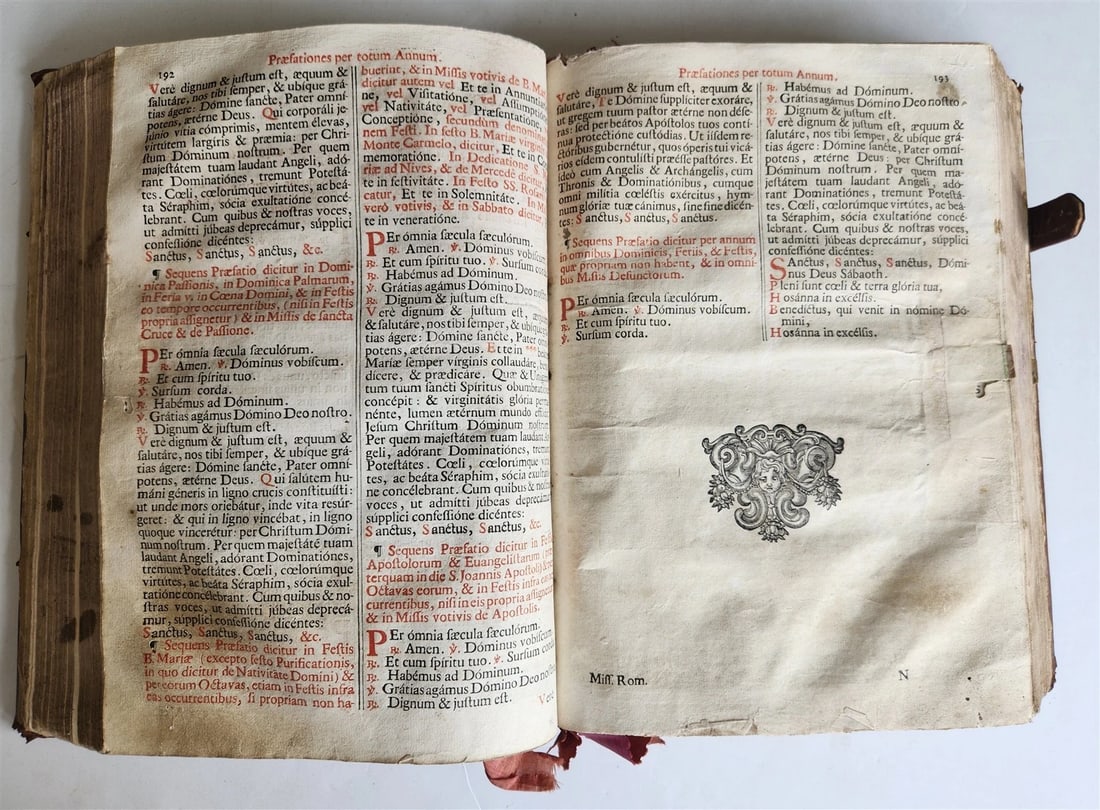 192
Præfationes per totum Annum.
Verè dignum & justum est, æquum &
salutáre, nos tibi semper, & ubíque grá-
tias ágere: Dómine sancte, Pater omní-
potens, ætérne Deus. Qui corporáli je-
júnio vítia cómprimis, mentem élevas,
virtútem largíris & præmia: per Chri-
stum Dóminum nostrum. Per quem
majestátem tuam laudant Angeli, adó-
rant Dominatiónes, tremunt Potestá-
tes. Cœli, cœlorúmque virtútes, ac beá-
ta Séraphim, sócia exultatióne concé-
lebrant. Cum quibus & nostras voces,
ut admítti júbeas deprecámur, súpplici
confessióne dicéntes:
Sanctus, Sanctus, Sanctus, &c.
¶ Sequens Præfatio dicitur in Domi-
nica Passionis, in Dominica Palmarum,
in Feria v. in Cœna Domini, & in Festis
eo tempore occurrentibus, (nisi in Festis
propria assignetur) & in Missis de sancta
Cruce & de Passione.
PEr ómnia sæcula sæculórum.
℟. Amen. ℣. Dóminus vobíscum.
℟. Et cum spíritu tuo.
℣. Sursum corda.
℟. Habémus ad Dóminum.
℣. Grátias agámus Dómino Deo nostro.
℟. Dignum & justum est.
Verè dignum & justum est, æquum &
salutáre, nos tibi semper, & ubíque grá-
tias ágere: Dómine sancte, Pater omní-
potens, ætérne Deus. Qui salútem hu-
máni géneris in ligno crucis constituísti:
ut unde mors oriebátur, inde vita resúr-
geret: & qui in ligno vincébat, in ligno
quoque vincerétur: per Christum Dómi-
num nostrum. Per quem majestáté tuam
laudant Angeli, adórant Dominatiónes,
tremunt Potestátes. Cœli, cœlorúmque
virtútes, ac beáta Séraphim, sócia exul-
tatióne concélebrant. Cum quibus & no-
stras voces, ut admítti júbeas deprecá-
mur, súpplici confessióne dicéntes:
Sanctus, Sanctus, Sanctus, &c.
¶ Sequens Præfatio dicitur in Festis
B. Mariæ (excepto festo Purificationis,
in quo dicitur de Nativitate Domini) &
per eorum Octavas, etiam in Festis infra
eas occurrentibus, si propriam non ha-
buerint, & in Missis votivis de B. Mar
dicitur autem vel Et te in Annuntia
ne, vel Visitatióne, vel Assumptió
vel Nativitáte, vel Præsentatióne,
Conceptióne, secundum denominatio
nem Festi. In festo B. Mariæ virginis
Monte Carmelo, dicitur, Et te in Co
memoratióne. In Dedicatione S.
riæ ad Nives, & de Mercede dicitur,
te in festivitáte. In Festo SS. Rosarii
catur, Et te in Solemnitáte. In M
verò votivis, & in Sabbato dicitur
te in veneratióne.
PEr ómnia sæcula sæculórum.
℟. Amen. ℣. Dóminus vobíscum
℟. Et cum spíritu tuo. ℣. Sursum cor
℟. Habémus ad Dóminum.
℣. Grátias agámus Dómino Deo nost
℟. Dignum & justum est.
Verè dignum & justum est, æquum
& salutáre, nos tibi semper, & ubíque
tias ágere: Dómine sancte, Pater omní-
potens, ætérne Deus. Et te in
Maríæ semper vírginis collaudáre, bene
dícere, & prædicáre. Quæ & Unigé
tum tuum sancti Spíritus obumbrati
concépit: & virginitátis glória perma
nénte, lumen ætérnum mundo effúdit
Jesum Christum Dóminum nostrum
Per quem majestátem tuam laudant An
geli, adórant Dominatiónes, tremu
Potestátes. Cœli, cœlorúmque virtu
tes, ac beáta Séraphim, sócia exultatió
ne concélebrant. Cum quibus & nostras
voces, ut admítti júbeas deprecámur
súpplici confessióne dicéntes:
Sanctus, Sanctus, Sanctus, &c.
¶ Sequens Præfatio dicitur in Festis
Apostolorum & Euangelistarum (præ
terquam in die S. Joannis Apostoli) & per
Octavas eorum, & in Festis infra eas oc
currentibus, nisi in eis propria assignetur
& in Missis votivis de Apostolis.
PEr ómnia sæcula sæculórum.
℟. Amen. ℣. Dóminus vobíscum.
℟. Et cum spíritu tuo. ℣. Sursum corda
℟. Habémus ad Dóminum.
℣. Grátias agámus Dómino Deo nost
℟. Dignum & justum est.
Verè
Præfationes per totum Annum.
193
Verè dignum & justum est, æquum &
salutáre, Te Dómine supplíciter exoráre,
ut gregem tuum pastor ætérne non dése-
ras: sed per beátos Apóstolos tuos contí-
nua protectióne custódias. Ut iísdem re-
ctóribus gubernétur, quos óperis tui vicá-
rios eídem contulísti præésse pastóres. Et
ídeò cum Angelis & Archángelis, cum
Thronis & Dominatiónibus, cumque
omni milítia cœléstis exércitus, hym-
num glóriæ tuæ cánimus, sine fine dicén-
tes: Sanctus, Sanctus, Sanctus.
¶ Sequens Præfatio dicitur per annum
in omnibus Dominicis, Feriis, & Festis,
quæ propriam non habent, & in omni-
bus Missis Defunctorum.
PEr ómnia sæcula sæculórum.
℟. Amen. ℣. Dóminus vobíscum.
℟. Et cum spíritu tuo.
℣. Sursum corda.
℟. Habémus ad Dóminum.
℣. Grátias agámus Dómino Deo nostro.
℟. Dignum & justum est.
Verè dignum & justum est, æquum &
salutáre, nos tibi semper, & ubíque grá-
tias ágere: Dómine sancte, Pater omní-
potens, ætérne Deus: per Christum
Dóminum nostrum. Per quem ma-
jestátem tuam laudant Angeli, adó-
rant Dominatiónes, tremunt Potestá-
tes. Cœli, cœlorúmque virtútes, ac beá-
ta Séraphim, sócia exultatióne concé-
lebrant. Cum quibus & nostras voces,
ut admítti júbeas deprecámur, súpplici
confessióne dicéntes:
Sanctus, Sanctus, Sanctus, Dómi-
nus Deus Sábaoth.
Pleni sunt cœli & terra glória tua,
Hosánna in excélsis.
Benedíctus, qui venit in nómine Dó-
mini,
Hosánna in excélsis.
Miss. Rom.
N